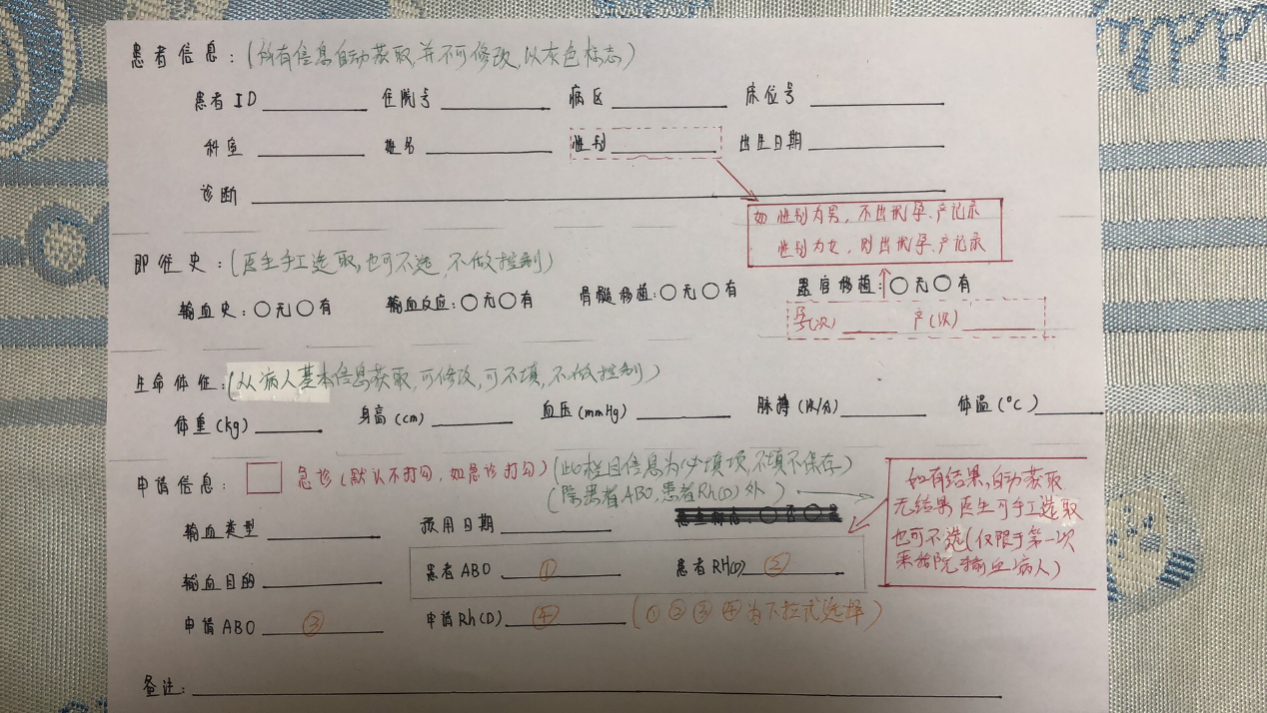 患者信息：（所有信息自动获取，并不可修改，以灰色标志）
患者ID 住院号 病区 床位号
科室 姓名 性别 出生日期
诊断
如性别为男，不出现孕、产记录
性别为女，则出现孕、产记录
即往史：（医生手工选取，也可不选，不做控制）
输血史：○无○有 输血反应：○无○有 骨髓移植：○无○有 器官移植：○无○有
孕(次) 产(次)
生命体征：（从病人基本信息获取，可修改，可不填，不做控制）
体重(kg) 身高(cm) 血压(mmHg) 脉搏(次/分) 体温(°C)
申请信息： 急诊（默认不打勾，如急诊打勾）（此栏目信息为必填项，不填不保存）
（除患者ABO，患者Rh(D)外）
如有结果，自动获取
无结果医生可手工选取
也可不选（仅限于第一次
来我院输血病人）
输血类型 预用日期
输血目的 患者ABO ① 患者RH(D) ②
申请ABO ③ 申请Rh(D) ④ （①②③④为下拉式选择）
备注：